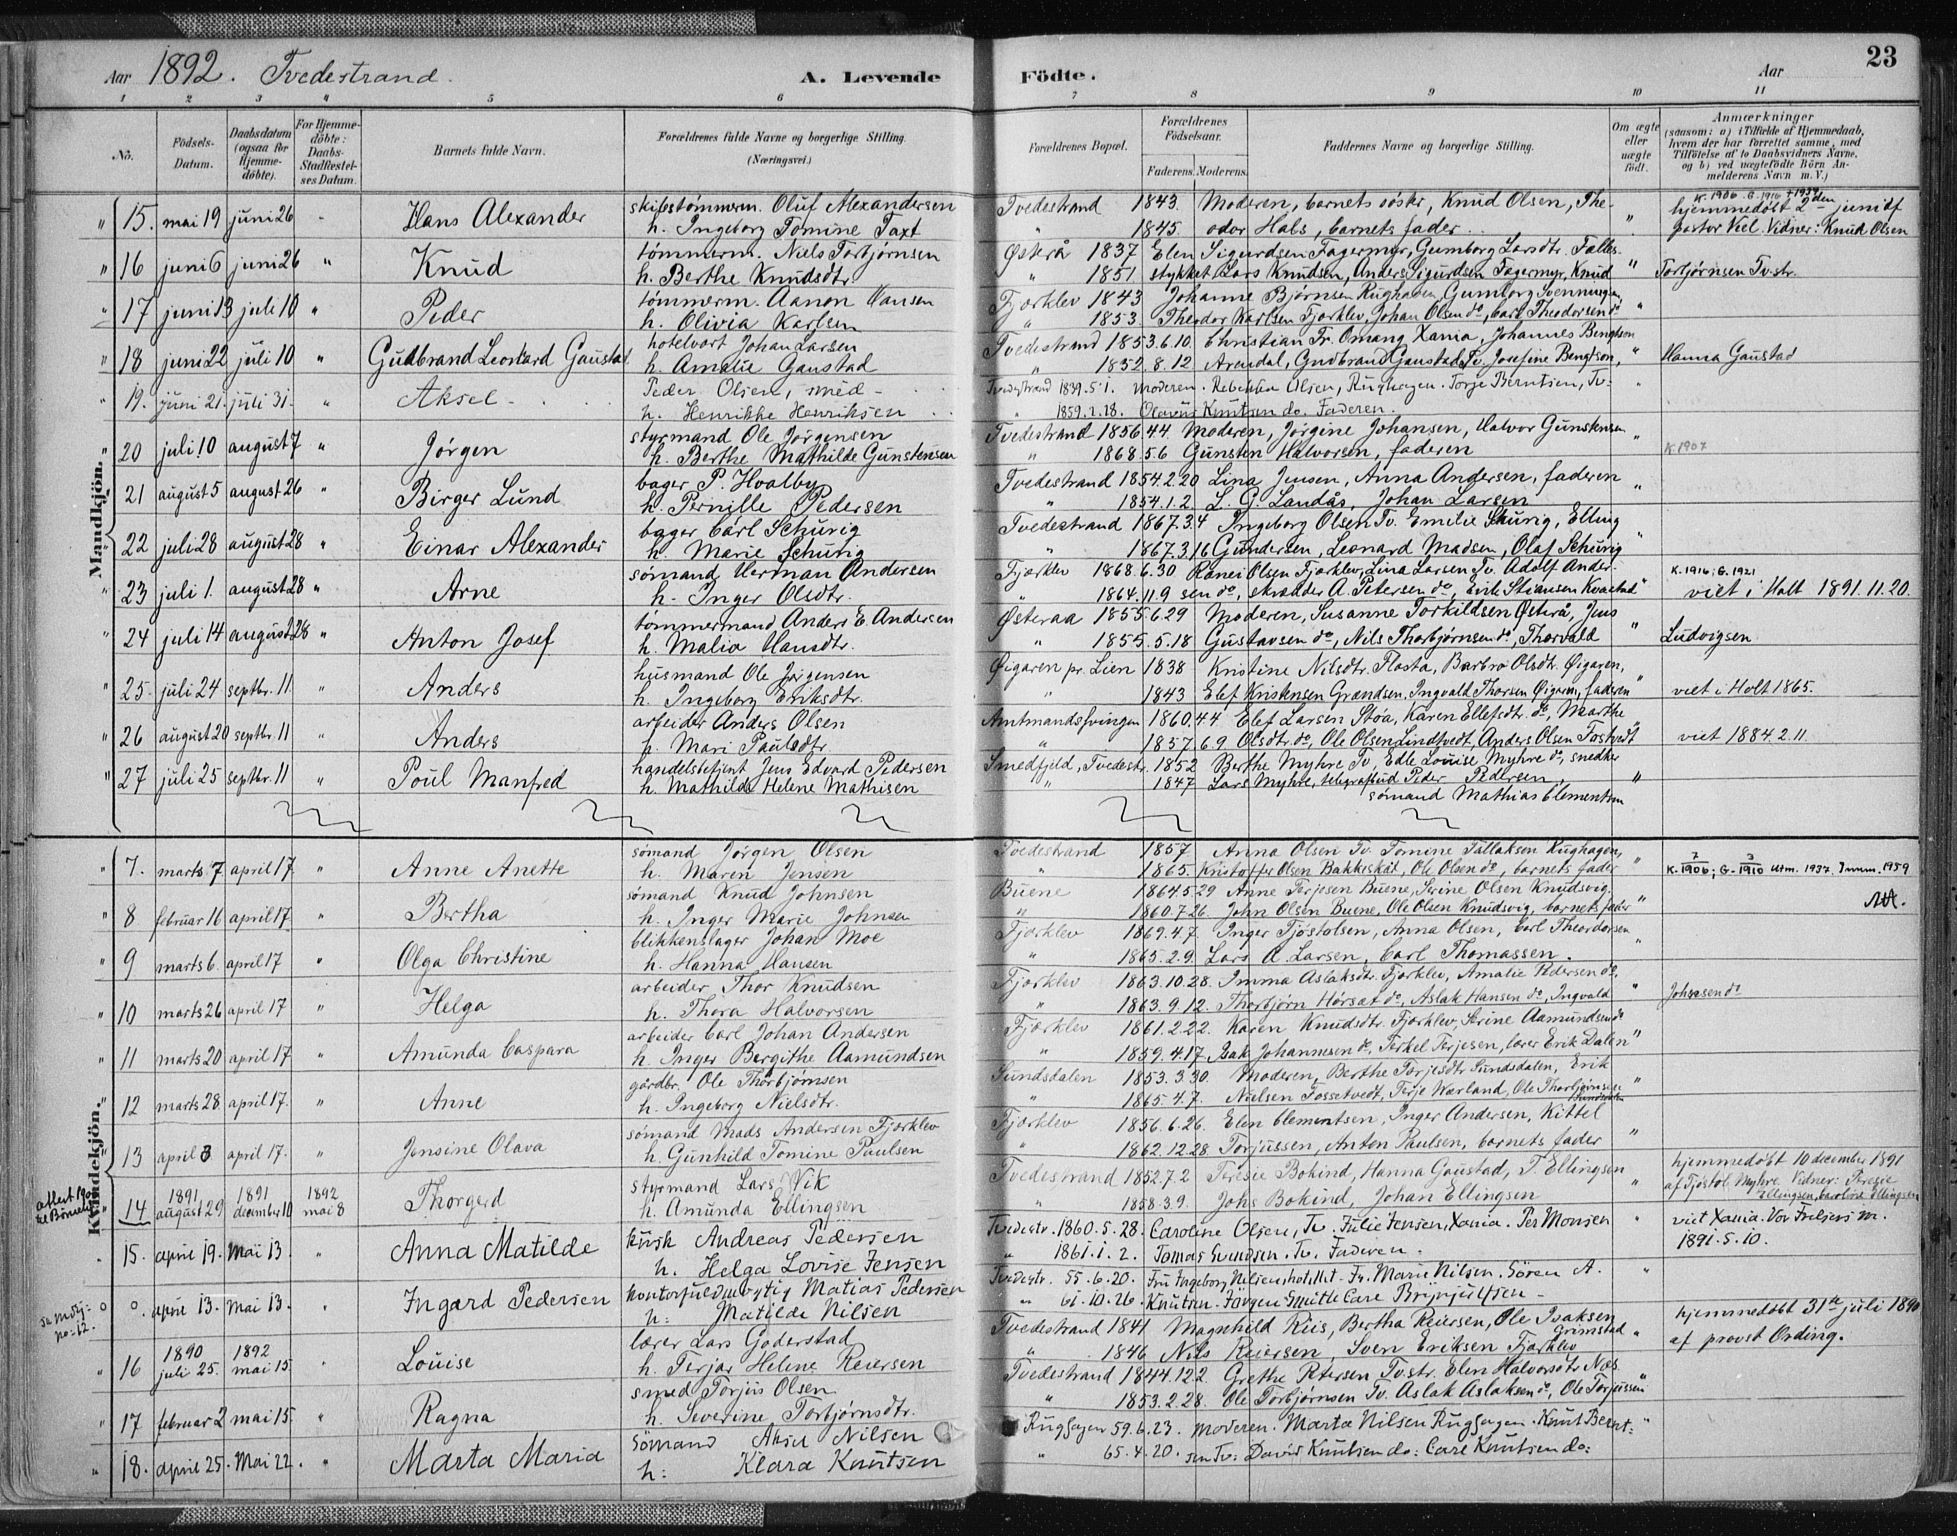 Aar 1892. Tvedestrand. A. Levende Födte. Aar 23
1 2 3 4 5 6 7 8 9 10 11
No. Födsels-Datum. Daabsdatum (ogsaa for Hjemmedöbte). For Hjemmedöbte: Daabs-Stadfæstelses Datum. Barnets fulde Navn. Forældrenes fulde Navne og borgerlige Stilling. (Næringsvei.) Forældrenes Bopæl. Forældrenes Födselsaar. Faderens. Moderens. Faddernes Navne og borgerlige Stilling. Om ægte eller uægte födt. Anmærkninger (saasom: a) i Tilfælde af Hjemmedaab, hvem der har forrettet samme, med Tilföielse af to Daabsvidners Navne, og b) ved uægtefödte Börn Anmelderens Navn m. V.)
Mandkjön.
K. 1906 G. 1916 +1959
" 15. mai 19 juni 26 - Hans Alexander skibstømmerm. Oluf Alexandersen Tvedestrand 1843. Moderen, barnets søster, Knud Olsen, The- hjemmedøbt 2den juni af
h. Ingeborg Tomine Taxt " 1845. odor Hals, barnets fader. " pastor Kiel. Vidner: Knud Olsen
" 16 juni 6 juni 26 " Knud tømmerm. Niels Torbjørnsen Østerå 1837 Elen Sigurdsen Fagermyr, Gumborg Larsdtr. Fælles-
h. Berthe Knudsdtr. " 1851 stykket Lars Knudsen, Anders Sigurdsen Fagermyr, Knud " Torbjørnsen Tv.str.
" 17 juni 13 juli 10 " Peder tømmerm. Aanon Hansen Fjærklev 1843 Johanne Bjørnsen Rughaven, Gumborg Svenningsen,
h. Olivia Karlsen " 1853 Theodor Karlsen Fjærklev, Johan Olsen do, Carl Theodorsen do "
" 18 juni 22 juli 10 " Gudbrand Leonhard Gaustad hotelvært Johan Larsen Tvedestrand 1853.6.10. Christian Fr. Omang Xania, Johannes Bengtson
h. Amalie Gaustad " 1852.8.12 Arendal, Gudbrand Gaustad Tv. Josefine Bengtson, " Hanna Gaustad
" 19. juni 21. juli 31. " Aksel Peder Olsen, smed Tvedestrand 1859.5.1. Moderen. Rebekka Olsen, Rughagen. Torje Berntsen, Tv:
h. Henrikke Henriksen " 1859.2.18. Olavus Knutsen do. Faderen. "
" 20 juli 10 august 7 " Jørgen styrmand Ole Jørgensen Tvedestrand 1856.4.4. Moderen, Jørgine Johansen, Halvor Gunstensen
h. Berthe Mathilde Gunstensen " 1868.5.6 Gunsten Halvorsen, faderen " K. 1907
" 21 august 5 august 26 " Birger Lund bager P. Hvalby Tvedestrand 1854.2.20 Lina Jensen, Anna Andersen, faderen
h. Pernille Pedersen " 1854.1.2 L. G. Landås, Johan Larsen "
" 22 juli 28 august 28 " Einar Alexander bager Carl Schurig Tvedestrand 1867.3.4 Ingeborg Olsen Tv. Emilie Schurig, Elling
h. Marie Schurig " 1867.3.16 Gundersen, Leonard Madsen, Olaf Schurig
" 23 juli 1. august 28 " Arne sømand Herman Andersen Fjærklev 1868.6.30 Ranei Olsen Fjærklev, Lina Larsen Tv. Adolf Ander- K. 1916; G. 1921
h. Inger Olsdtr. " 1864.11.9 sen do, skrædder A. Petersen do, Erik Stiansen Kvastad " viet i Holt 1891.11.20.
" 24 juli 14 august 28 " Anton Josef tømmermand Anders E. Andersen Østeraa 1855.6.29 Moderen, Susanne Torkildsen Østerå, Jens
h. Malia Hansdtr. " 1855.5.18 Gustavsen do, Nils Thorbjørnsen do, Thorvald " Ludvigsen
" 25. juli 24 septbr. 11 " Anders husmand Ole Jørgensen Øigaren pr. Lien 1838 Kristine Nilsdtr. Flosta, Barbro Olsdtr. Øigaren,
h. Ingeborg Eriksdtr. " 1843 Elef Kristensen Grændsen, Ingvald Thorsen Øigaren, faderen " viet i Holt 1865.
" 26 august 20 septbr. 11 " Anders arbeider Anders Olsen Amtmandssvingen 1860.4.4 Elef Larsen Støa, Karen Ellefsdtr. do, Marthe
h. Mari Paulsdtr " 1857.6.9 Olsdtr. do, Ole Olsen Lindtvedt, Anders Olsen Fostvedt " viet 1884.2.11.
" 27 juli 25 septbr. 11 " Poul Manfred handelsbetjent Jens Edvard Pedersen Smedfjeld, Tvedestr. 1852 Berthe Myhre Tv, Edle Louise Myhre do, snedker
h. Mathilde Helene Mathisen " 1847 Lars Myhre, telegrafbud Peder Pedersen, "
sømand Mathias Clementsen
Kvindekjön.
" 7. marts 7 april 17 " Anne Anette sømand Jørgen Olsen Tvedestrand 1857 Anna Olsen Tv. Tomine Tallaksen Rughagen,
h. Maren Jensen " 1865. Kristoffer Olsen Bakkeskåt, Ole Olsen do, barnets fader " K. 7/1906; G. 3/1910 Utm. 1937. Innm. 1959
" 8 februar 16 april 17. " Bertha sømand Knud Johnsen Buene 1864.5.29 Anne Terjesen Buene, Serine Olsen Knudsvig.
h. Inger Marie Johnsen " 1860.7.26. John Olsen Buene, Ole Olsen Knudsvig, barnets fader "
" 9 marts 6. april 17 " Olga Christine blikkenslager Johan Moe Fjærklev 1869.4.7. Inger Fjøstolsen, Anna Olsen, Carl Theordorsen
h. Hanna Hansen " 1865.2.9. Lars A. Larsen, Carl Thomassen. "
" 10 marts 26 april 17 " Helga arbeider Thor Knudsen Fjærklev 1863.10.28. Imma Aslaksdtr. Fjærklev, Amalie Pedersen do.
h. Thora Halvorsen " 1863.9.12. Thorbjørn Hørsæt do, Aslak Hansen do, Ingvald " Johnsen do
" 11 marts 20 april 17. " Amunda Caspara arbeider Carl Johan Andersen Fjærklev 1861.2.22. Karen Knudsdtr. Fjærklev, Serine Aamundsen do
h. Inger Bergithe Aamundsen " 1859.4.17. Isak Johannesen do, Terkel Terjesen, lærer Erik Dalen "
" 12 marts 28. april 17. " Anne gårdbr. Ole Thorbjørnsen Sundsdalen 1853.3.30. Moderen, Berthe Terjesdtr. Sundsdalen, Erik
h. Ingeborg Nielsdtr. " 1865.4.7. Nielsen Fossetvedt, Terje Værland, Ole Thorbjørnsen Sundsdalen "
" 13 april 3 april 17. " Jensine Olava sømand Mads Andersen Fjærklev Fjærklev 1856.6.26. Elen Clementsen, Inger Andersen, Kittel
h. Gunhild Tomine Paulsen " 1862.12.28 Torjussen, Anton Paulsen, barnets fader "
14 1891 august 29 1891 december 10 1892 mai 8 Thorgerd styrmand Lars Vik Tvedestrand 1852.7.2 Teresie Bokind, Hanna Gaustad, T. Ellingsen " hjemmedøbt 10 december 1891
h. Amunda Ellingsen " 1858.3.9. Johs Bokind, Johan Ellingsen af Fjøstol Myhre. Vidner: Teresie Ellingsen, Caroline Ellingsen
" 15. april 19. Mai 13. " Anna Matilde kusk Andreas Pedersen Tvedestr. 1860.5.28. Caroline Olsen, Tv. Julie Jensen, Xania. Per Monsen " viet Xania. Vor Frelsers m.
h. Helga Lovise Jensen " 1861.1.2. Tomas Svendsen. Tv. Faderen. 1891.5.10.
o o. april 13. Mai 13. " Ingard Pedersen kontorfuldmægtig Matias Pedersen Tvedestr. 55.6.20. Fru Ingeborg Nilsen, hotellet. Fr. Marie Nilsen. Sören A. "
h: Matilde Nilsen " 61.10.26. Knutsen. Jörgen Smitt. Carl Brynjulfsen
" 16 1890 juli 25. 1892 mai 15. " Louise lærer Lars Goderstad Tvedestrand 1841 Magnhild Riis, Bertha Reiersen, Ole Isaksen Grimstad " hjemmedøbt 31te juli 1890
h. Terjar Helene Reiersen " 1846 Nils Reiersen, Sven Eriksen Fjærklev af provst Ording.
" 17 februar 2 mai 15. " Ragna smed Torjus Olsen Tvedestrand 1844.12.2 Grethe Petersen Tv.str. Elen Halvorsdtr Næs
h. Severine Torbjørnsdtr. " 1853.2.28. Ole Torbjørnsen Tv. Aslak Aslaksen do, Ole Torjussen "
" 18. april 25. Mai 22. " Marta Maria Sömand Aksel Nilsen Rughagen 59.6.23. Moderen. Marta Nilsen Rughagen. Knut Bernt- "
h: Klara Knutsen " 65.4.20. sen Tv: David Knutsen do: Carl Knutsen do: